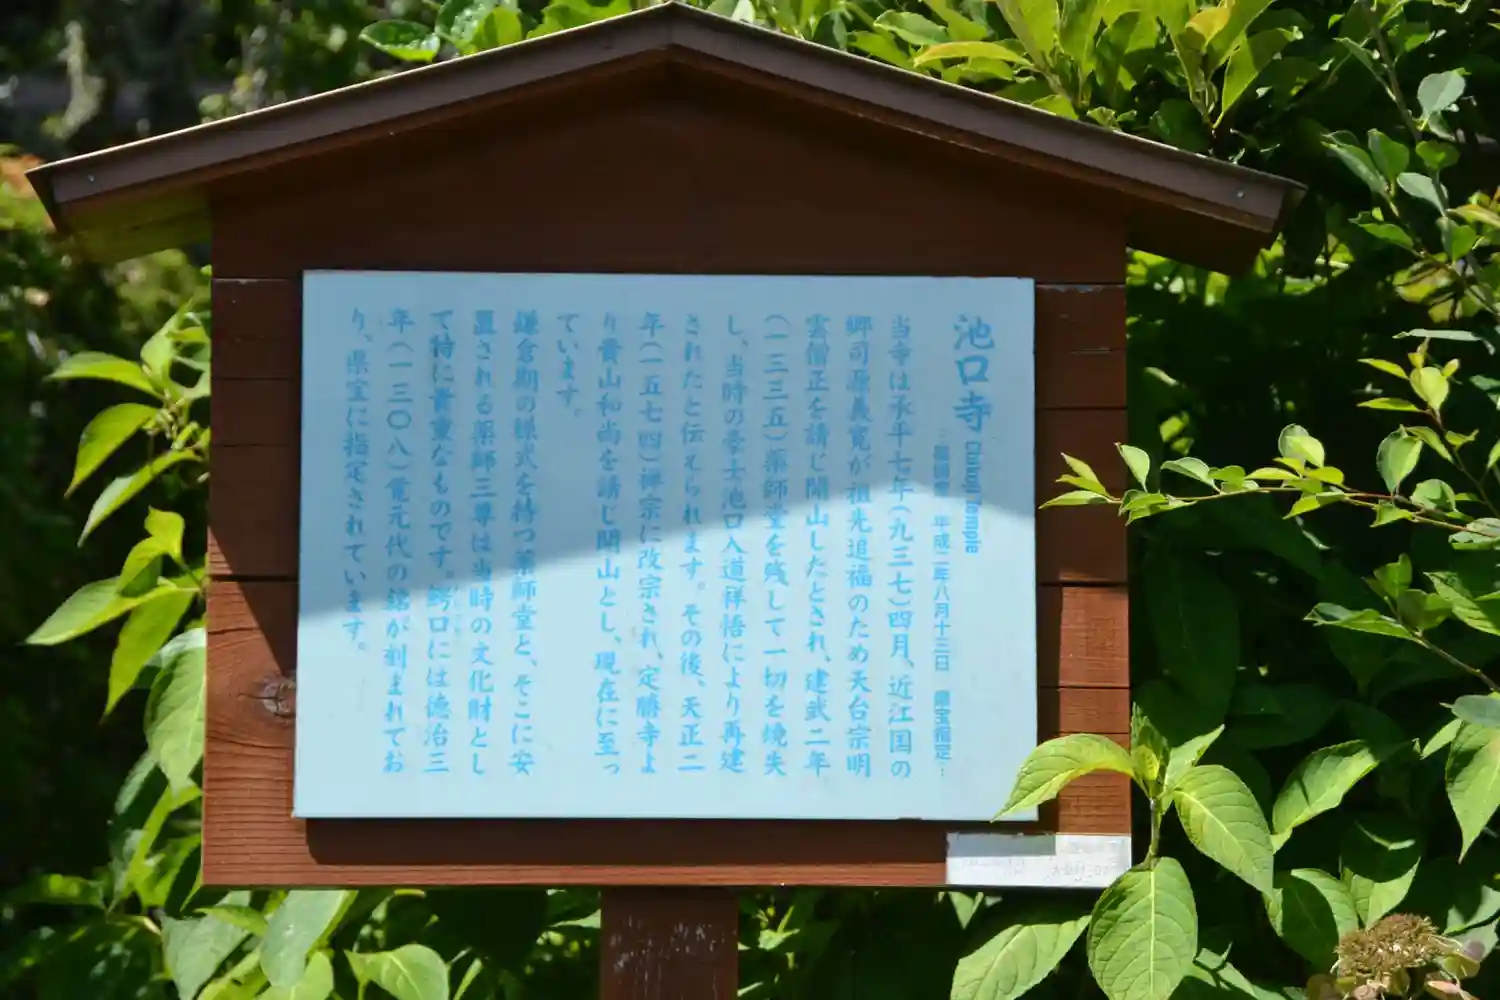 池口寺 Chikuji Temple
平成二年八月十三日 県宝指定
当寺は承平七年(九三七)四月、近江国の
郷司源義寛が祖先追福のため天台宗明
雲僧正を請じ開山したとされ、建武二年
(一三三五)薬師堂を残して一切を焼失
し、当時の豪士池口入道祥悟により再建
されたと伝えられます。その後、天正二
年(一五七四)禅宗に改宗され、定勝寺よ
り貴山和尚を請じ開山とし、現在に至っ
ています。
鎌倉期の様式を持つ薬師堂と、そこに安
置される薬師三尊は当時の文化財とし
て特に貴重なものです。鰐口には徳治三
年(一三〇八)竜元代の銘が刻まれてお
り、県宝に指定されています。